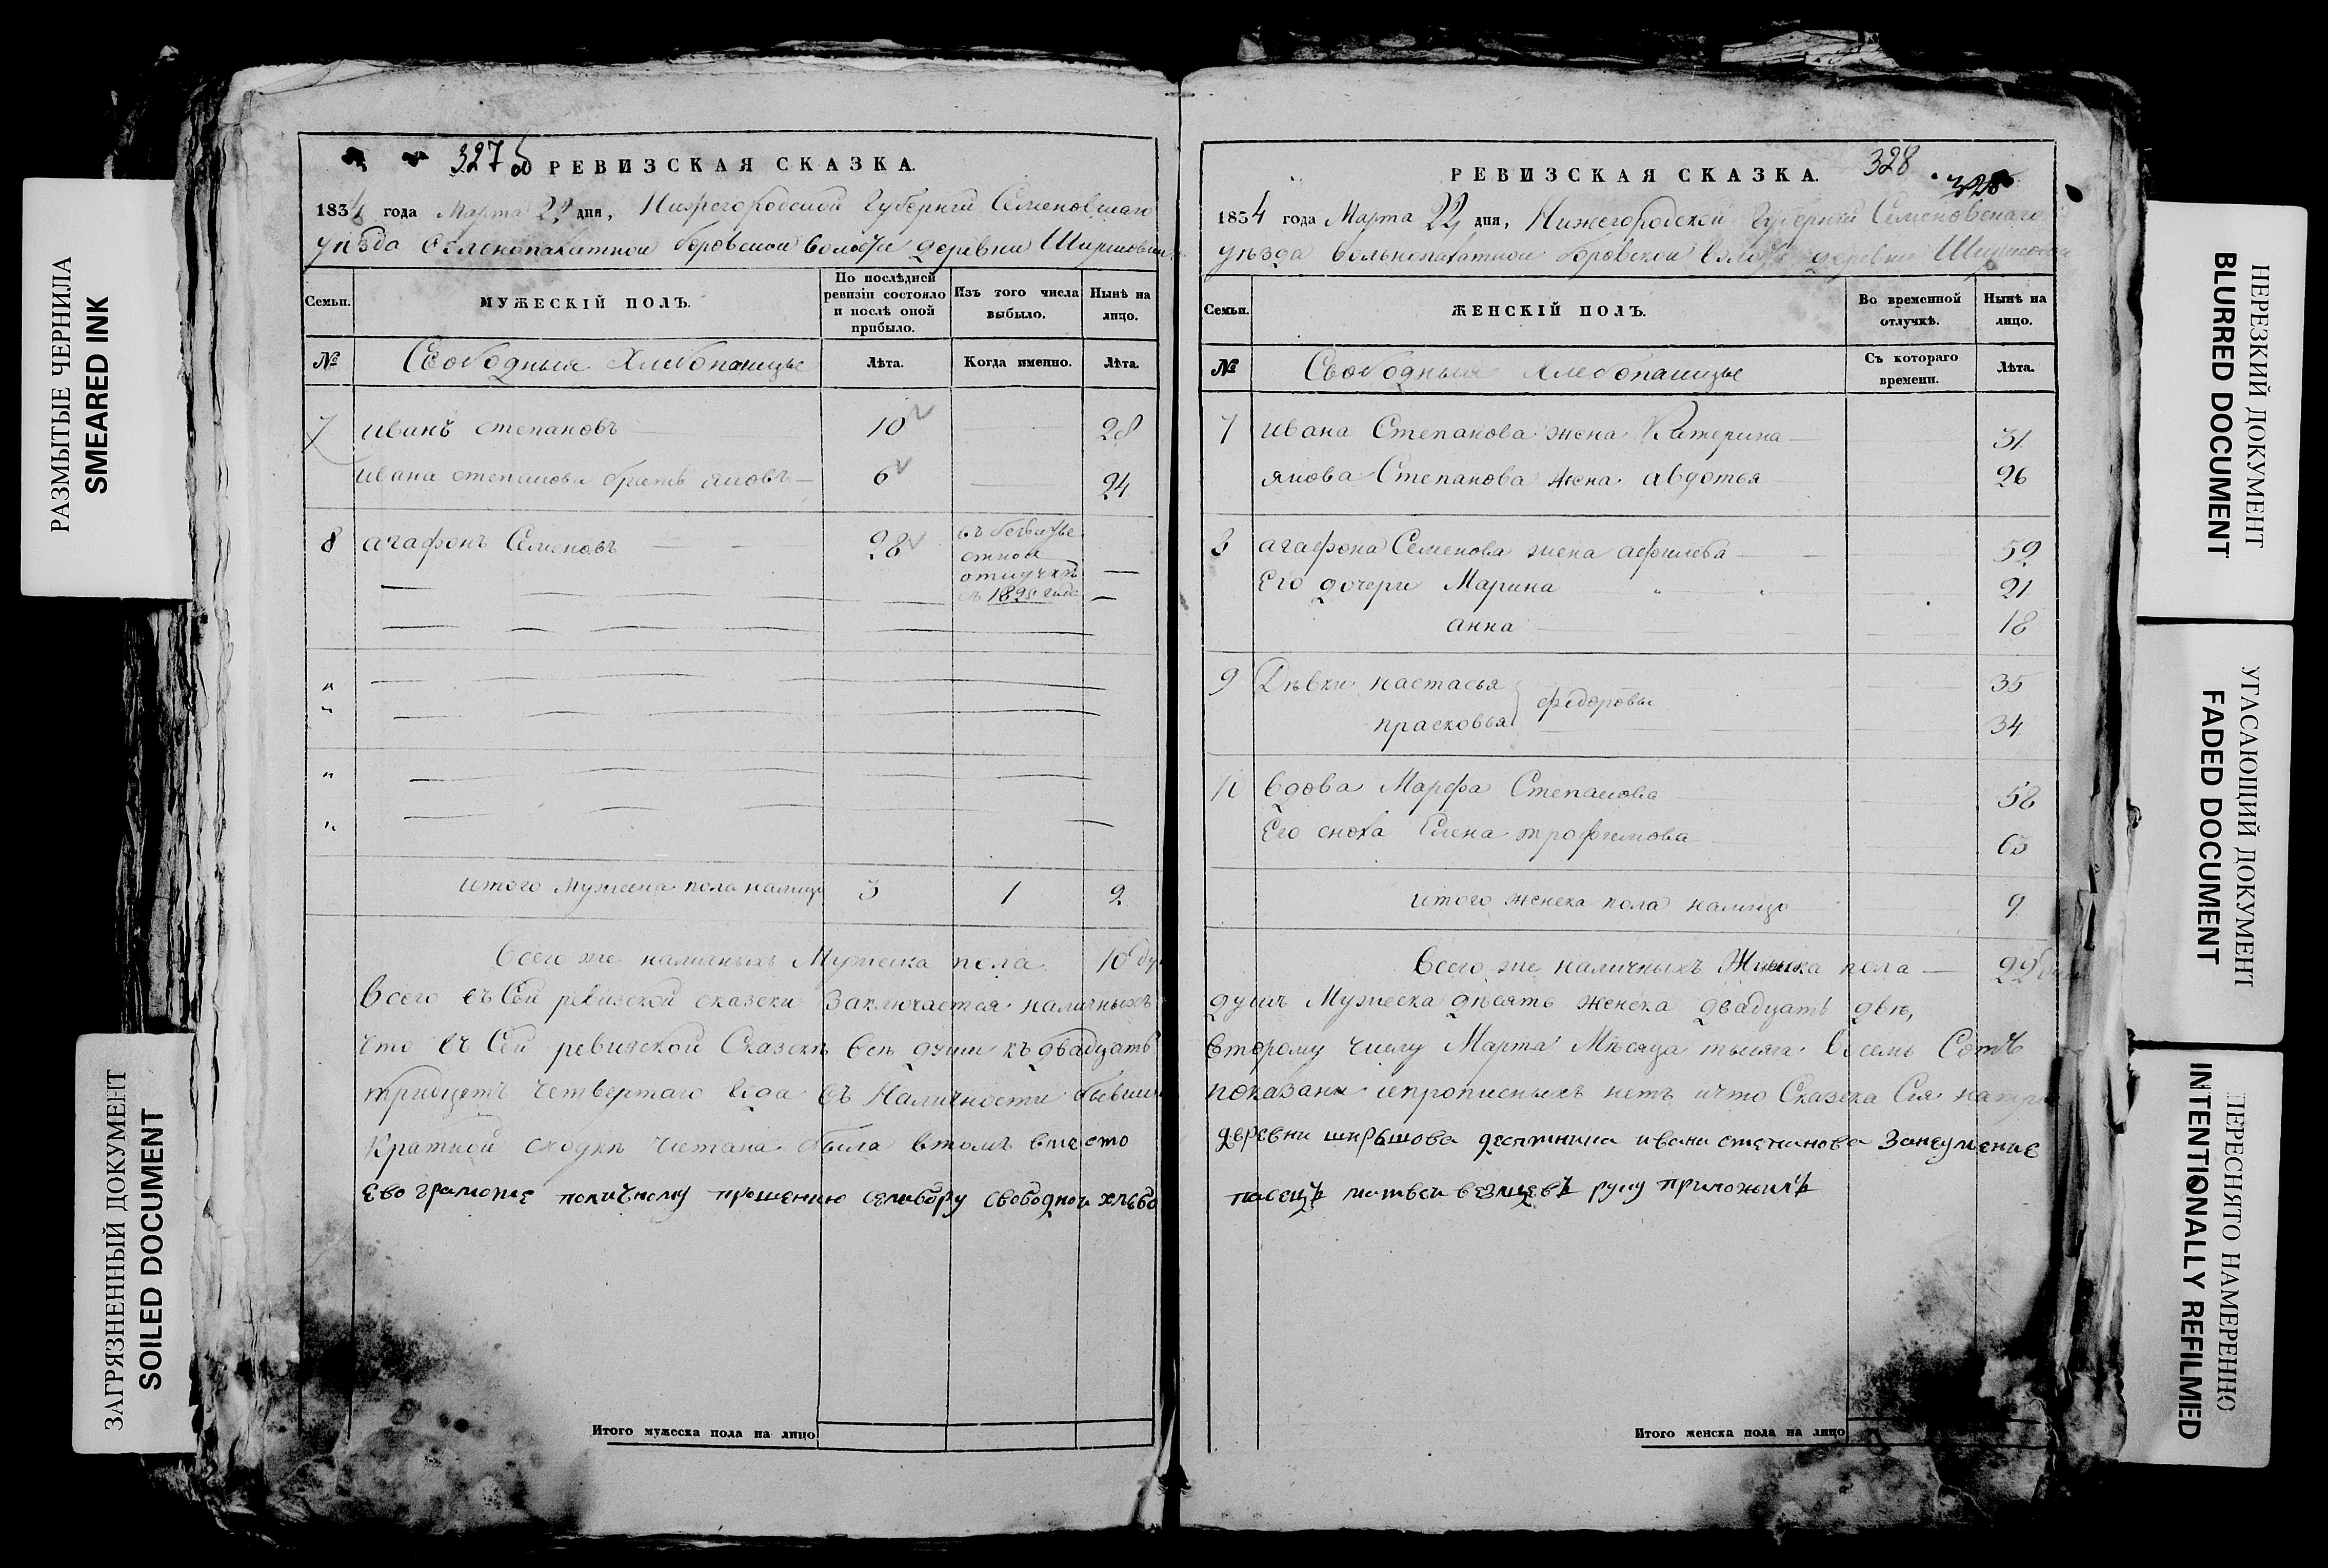 327 об
РЕВИЗСКАЯ СКАЗКА.
1834 года Марта 22 дня, Нижегородской Губернии Семеновскаго
уѣзда вольнопахатной боровской волости деревни Ширшова
Семьи.
МУЖЕСКІЙ ПОЛЪ.
По послѣдней ревизіи состояло и послѣ оной прибыло.
Изъ того числа выбыло.
Нынѣ на лицо.
№
Свободныя Хлебопашцы
Лѣта.
Когда именно.
Лѣта.
7 иванъ степановъ 10 28
ивана степанова братъ яковъ 6 24
8 агафонъ Семеновъ 28 въ безъизве
стной
отлучкѣ
съ 1825 года
итого мужеска пола налицо 3 1 2
всего же наличныхъ Мужеска пола 10 ду
всего въ Сей ревизской сказски заключается наличныхъ
что въ Сей ревизской Сказскѣ всѣ души къ двадцать
тридцеть четвертаго года въ Наличности бывши
кратной сходкѣ читана была втомъ вместо
ево грамоте поличному прошению свободной хлѣбо
Итого мужеска пола на лицо
328
328
РЕВИЗСКАЯ СКАЗКА.
1834 года Марта 22 дня, Нижегородской Губернии Семеновскаго
уѣзда вольнопахатной боровской волости деревни Ширшова
Семьи.
ЖЕНСКІЙ ПОЛЪ.
Во временной отлучкѣ.
Нынѣ на лицо.
№
Свободныя Хлебопашцы
Съ котораго времени.
Лѣта.
7 ивана Степанова жена Катерина 31
якова Степанова жена авдотья 26
8 агафона Семенова жена 52
Его дочери Марина 21
анна 18
9 Дѣвки настасья 35
федоровы
прасковья 34
вдова Марфа Степанова 58
Его сноха Елена трофимова
итого женска пола налицо 9
всего же наличныхъ Женска пола 22
душъ Мужеска дѣсять женска двадцать двѣ,
второму числу Марта Мѣсяца тысяча восемь Сотъ
показаны ипрописныхъ нетъ ичто Сказска Сія натри
деревни ширшова десятника ивана степанова занеумение
пасецъ матвей руку приложилъ
Итого женска пола на лицо
РАЗМЫТЫЕ ЧЕРНИЛА
SMEARED INK
ЗАГРЯЗНЕННЫЙ ДОКУМЕНТ
SOILED DOCUMENT
НЕРЕЗКИЙ ДОКУМЕНТ
BLURRED DOCUMENT
УГАСАЮЩИЙ ДОКУМЕНТ
FADED DOCUMENT
ПЕРЕСНЯТО НАМЕРЕННО
INTENTIONALLY REFILMED